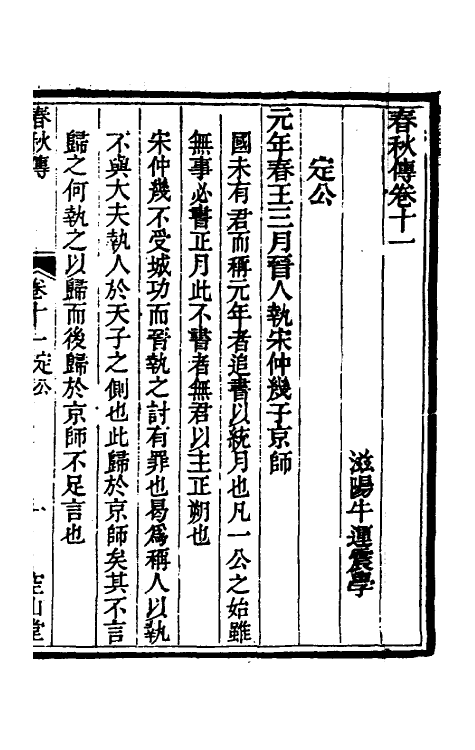 春秋傳卷十一
滋陽牛運震學
定公
元年春王三月晉人執宋仲幾于京師
國未有君而稱元年者追書以統月也凡一公之始雖
無事必書正月此不書者無君以主正朔也
宋仲幾不受城功而晉執之討有罪也曷爲稱人以執
不與大夫執人於天子之側也此歸於京師矣其不言
歸之何執之以歸而後歸於京師不足言也
春秋傳
卷十一定公
一
空山堂